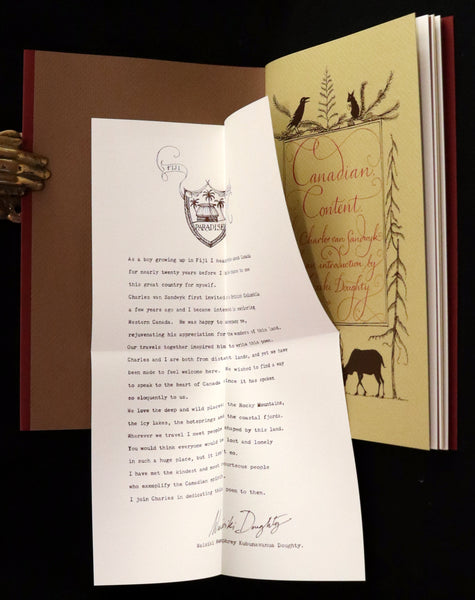 FIJI
PARADISE
As a boy growing up in Fiji I
for nearly twenty years before I
this great country for myself.
Charles van Sandwyk first invited British Columbia
a few years ago and I became exploring
Western Canada. We was happy to
rejuvenating his appreciation for wonders of this land.
Our travels together inspired him to write this poem.
Charles and I are both from distant lands, and yet we have
been made to feel welcome here. We wished to find a way
to speak to the heart of Canada since it has spoken
so eloquently to us.
We love the deep and wild places the Rocky Mountains,
the icy lakes, the hotsprings and the coastal fjords.
Wherever we travel I meet people shaped by this land.
You would think everyone would be lost and lonely
in such a huge place, but it isn't so.
I have met the kindest and most courteous people
who exemplify the Canadian spirit.
I join Charles in dedicating this poem to them.
Waisiki Doughty
Waisiki Kubunavanua Doughty.
Canadian
Content
Charles van Sandwyk
an introduction by
Doughty